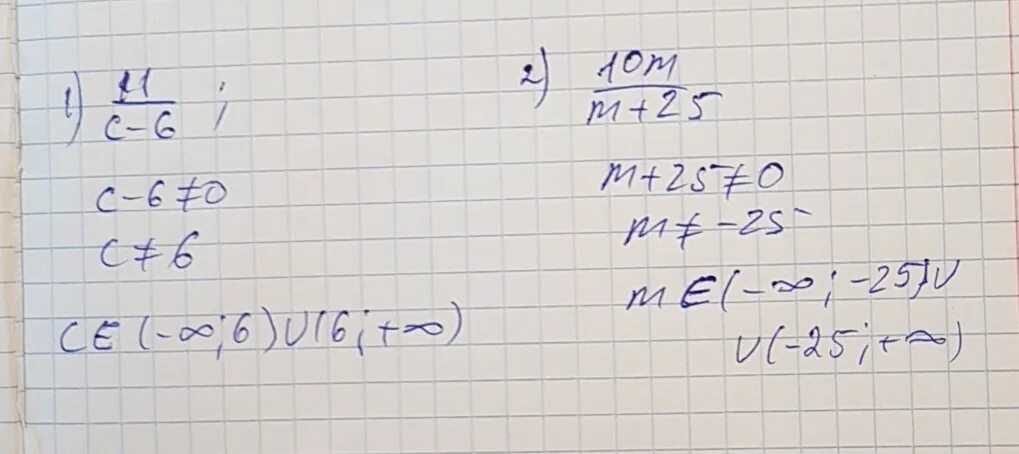 1) 11/(c-6) ;
c-6≠0
c≠6
c∈(-∞;6)∪(6;+∞)
2) 10m/(m+25)
m+25≠0
m≠-25
m∈(-∞;-25)∪
∪(-25;+∞)